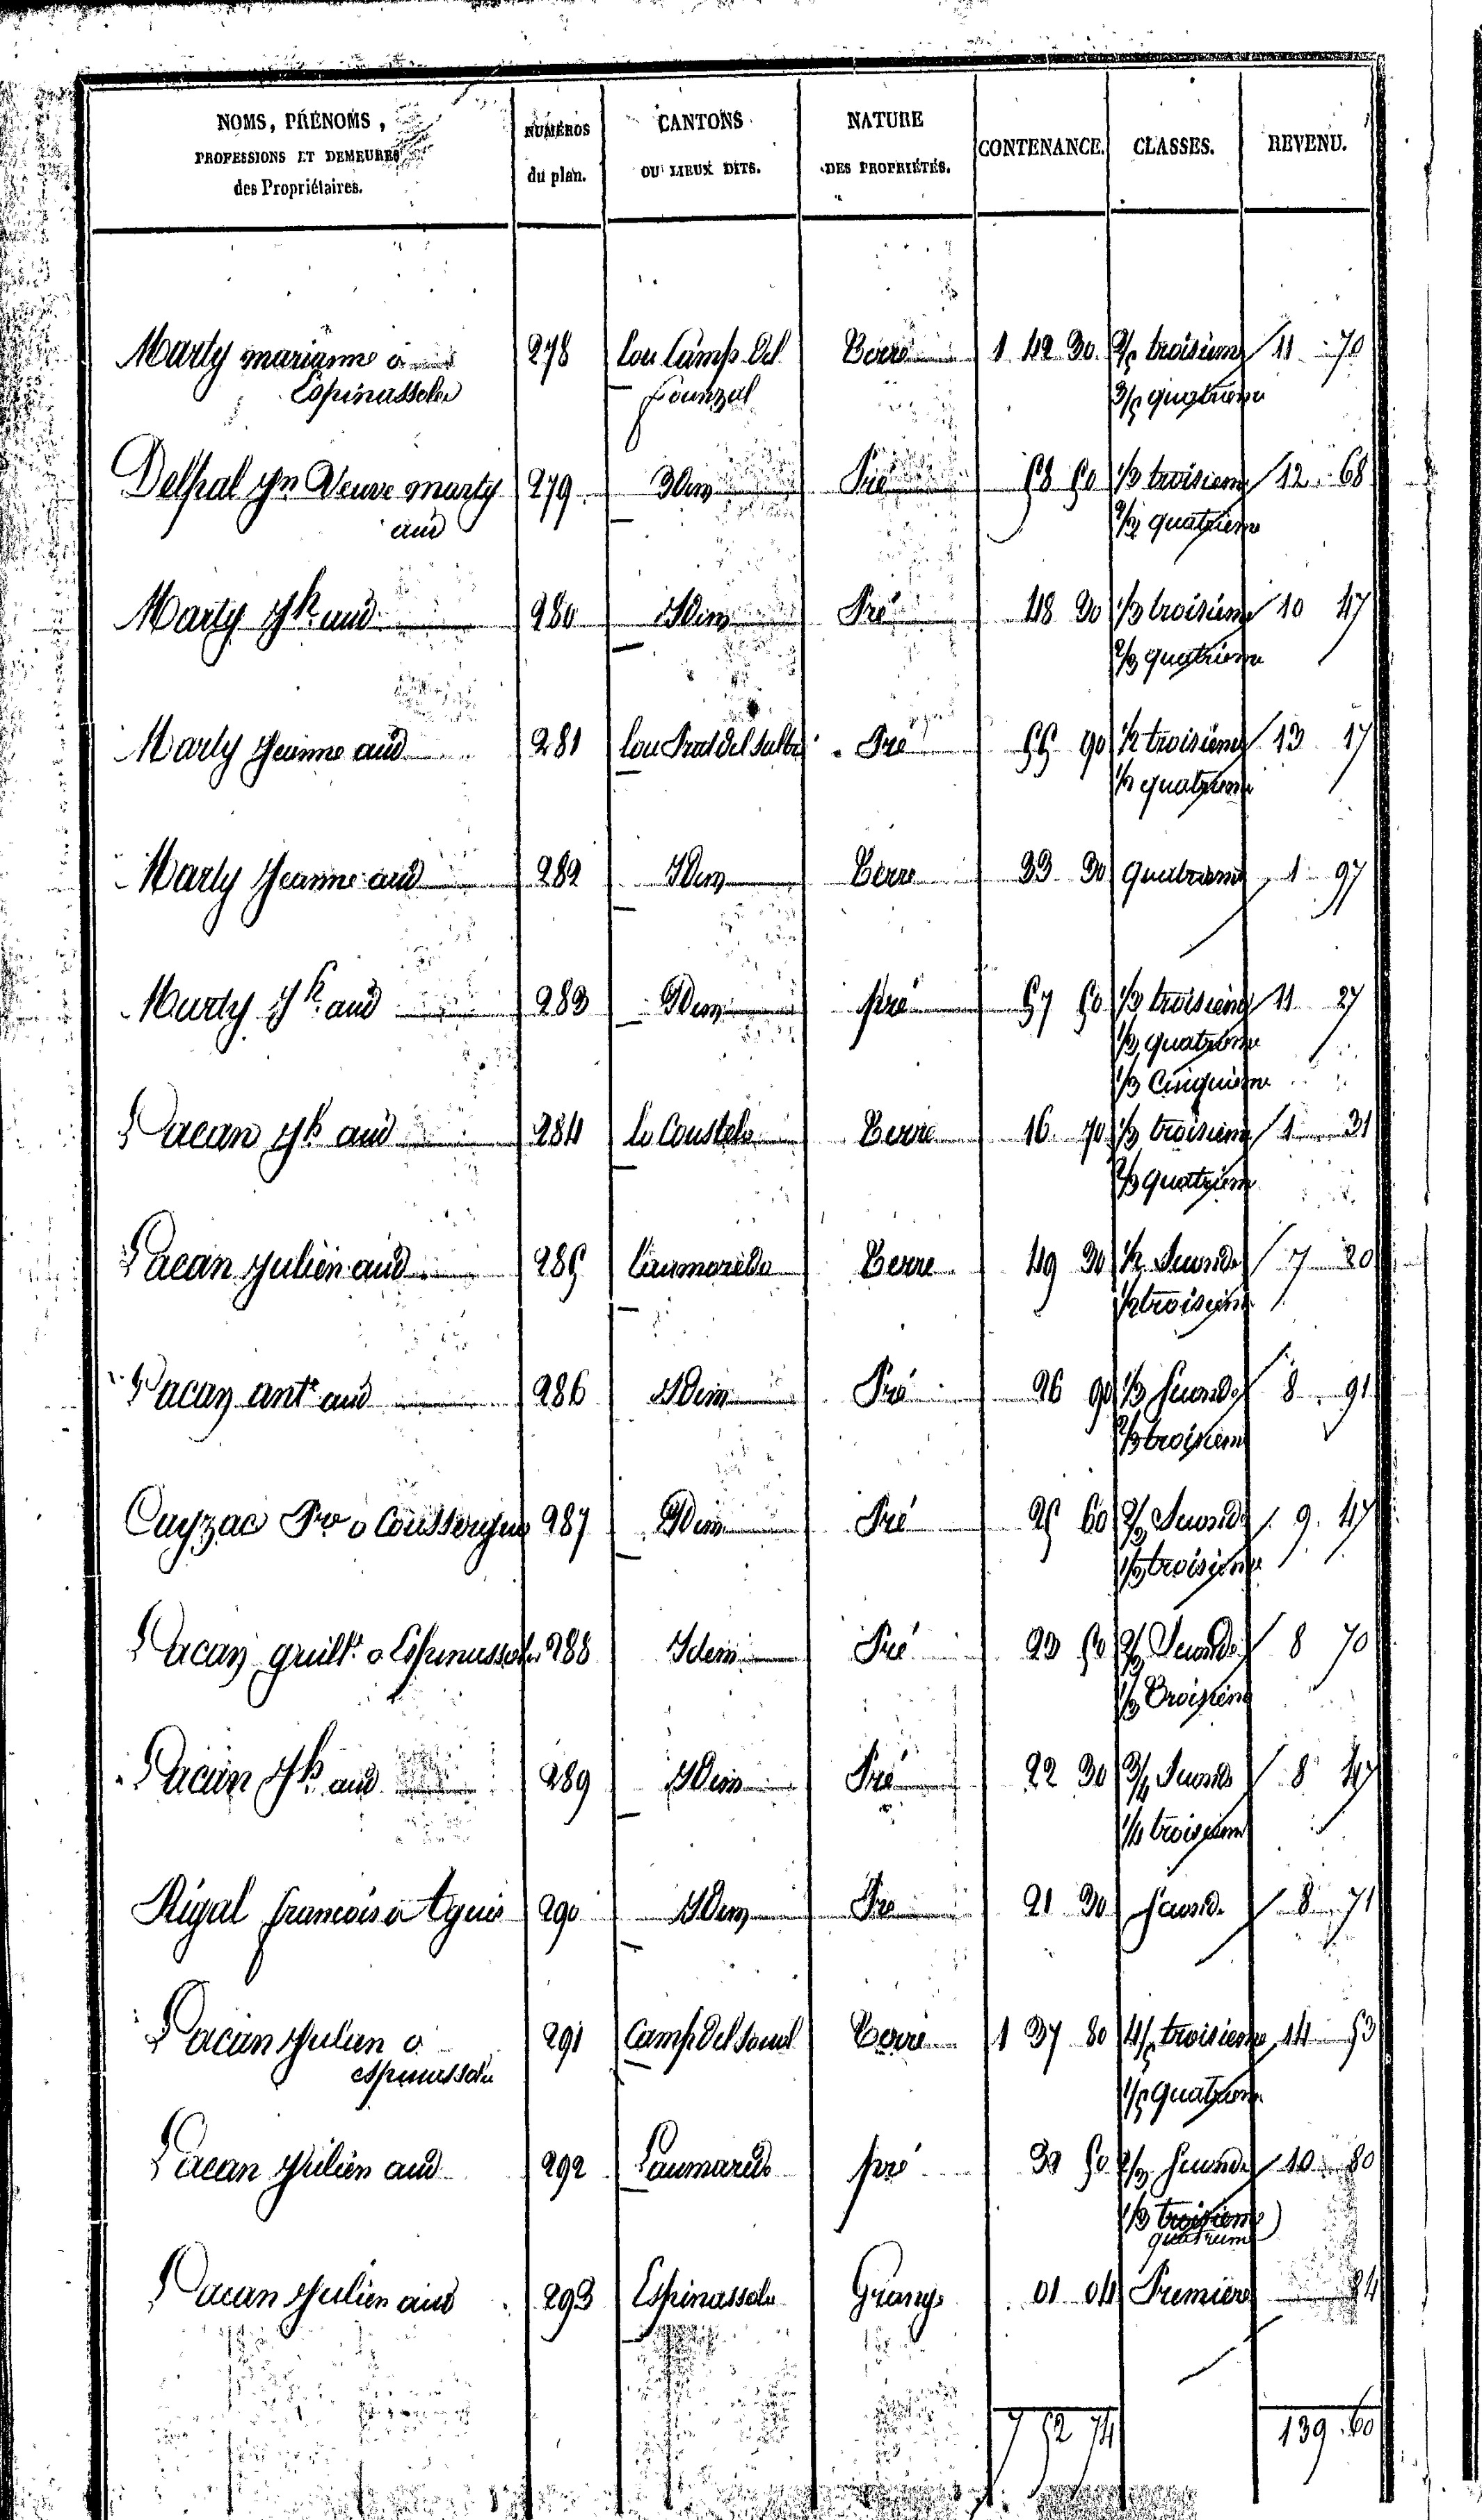 NOMS, PRÉNOMS, PROFESSIONS ET DEMEURES des Propriétaires. NUMÉROS du plan. CANTONS OU LIEUX DITS. NATURE DES PROPRIÉTÉS. CONTENANCE. CLASSES. REVENU.
Marty marianne à 278 lou Camp del Terre 1 42 30 2/5 troisieme 11 70
Espinassoles founzal 3/5 quatrieme
Delpal Veuve marty 279 Idem Pré 58 50 1/3 troisieme 12 68
aud 2/3 quatrieme
Marty Jh aud 280 Idem Pré 48 30 1/3 troisieme 10 47
2/3 quatrieme
Marty Jeanne aud 281 lou Prat del Pré 55 90 1/2 troisieme 13 17
1/2 quatrieme
Marty Jeanne aud 282 Idem Terre 33 30 quatrieme 1 97
Marty Jh aud 283 Idem pré 57 50 1/3 troisieme 11 27
1/3 quatrieme
1/3 Cinquieme
Pacan Jh aud 284 Terre 16 70 1/3 troisieme 1 31
2/3 quatrieme
Pacan Julien aud 285 Terre 49 30 1/2 Seconde 7 20
1/2 troisieme
Pacan ant aud 286 Idem Pré 26 90 1/3 Seconde 8 91
2/3 troisieme
Cayzac à 287 Idem Pré 25 60 2/3 Seconde 9 47
1/3 troisieme
Pacan guill à Espinassoles 288 Idem Pré 23 50 2/3 Seconde 8 70
1/3 Troisieme
Pacan Jh aud 289 Idem Pré 22 30 3/4 Seconde 8 47
1/4 troisieme
Rigal francois à 290 Idem Pré 21 30 Seconde 8 71
Pacan Julien à 291 Camp del Terre 1 37 80 4/5 troisieme 14 53
espinassoles 1/5 quatrieme
Pacan Julien aud 292 Laumarede pré 32 50 2/3 Seconde 10 80
1/3 troisieme
quatrieme
Pacan Julien aud 293 Espinassoles Grange 01 04 Premiere 24
7 52 74 139 60